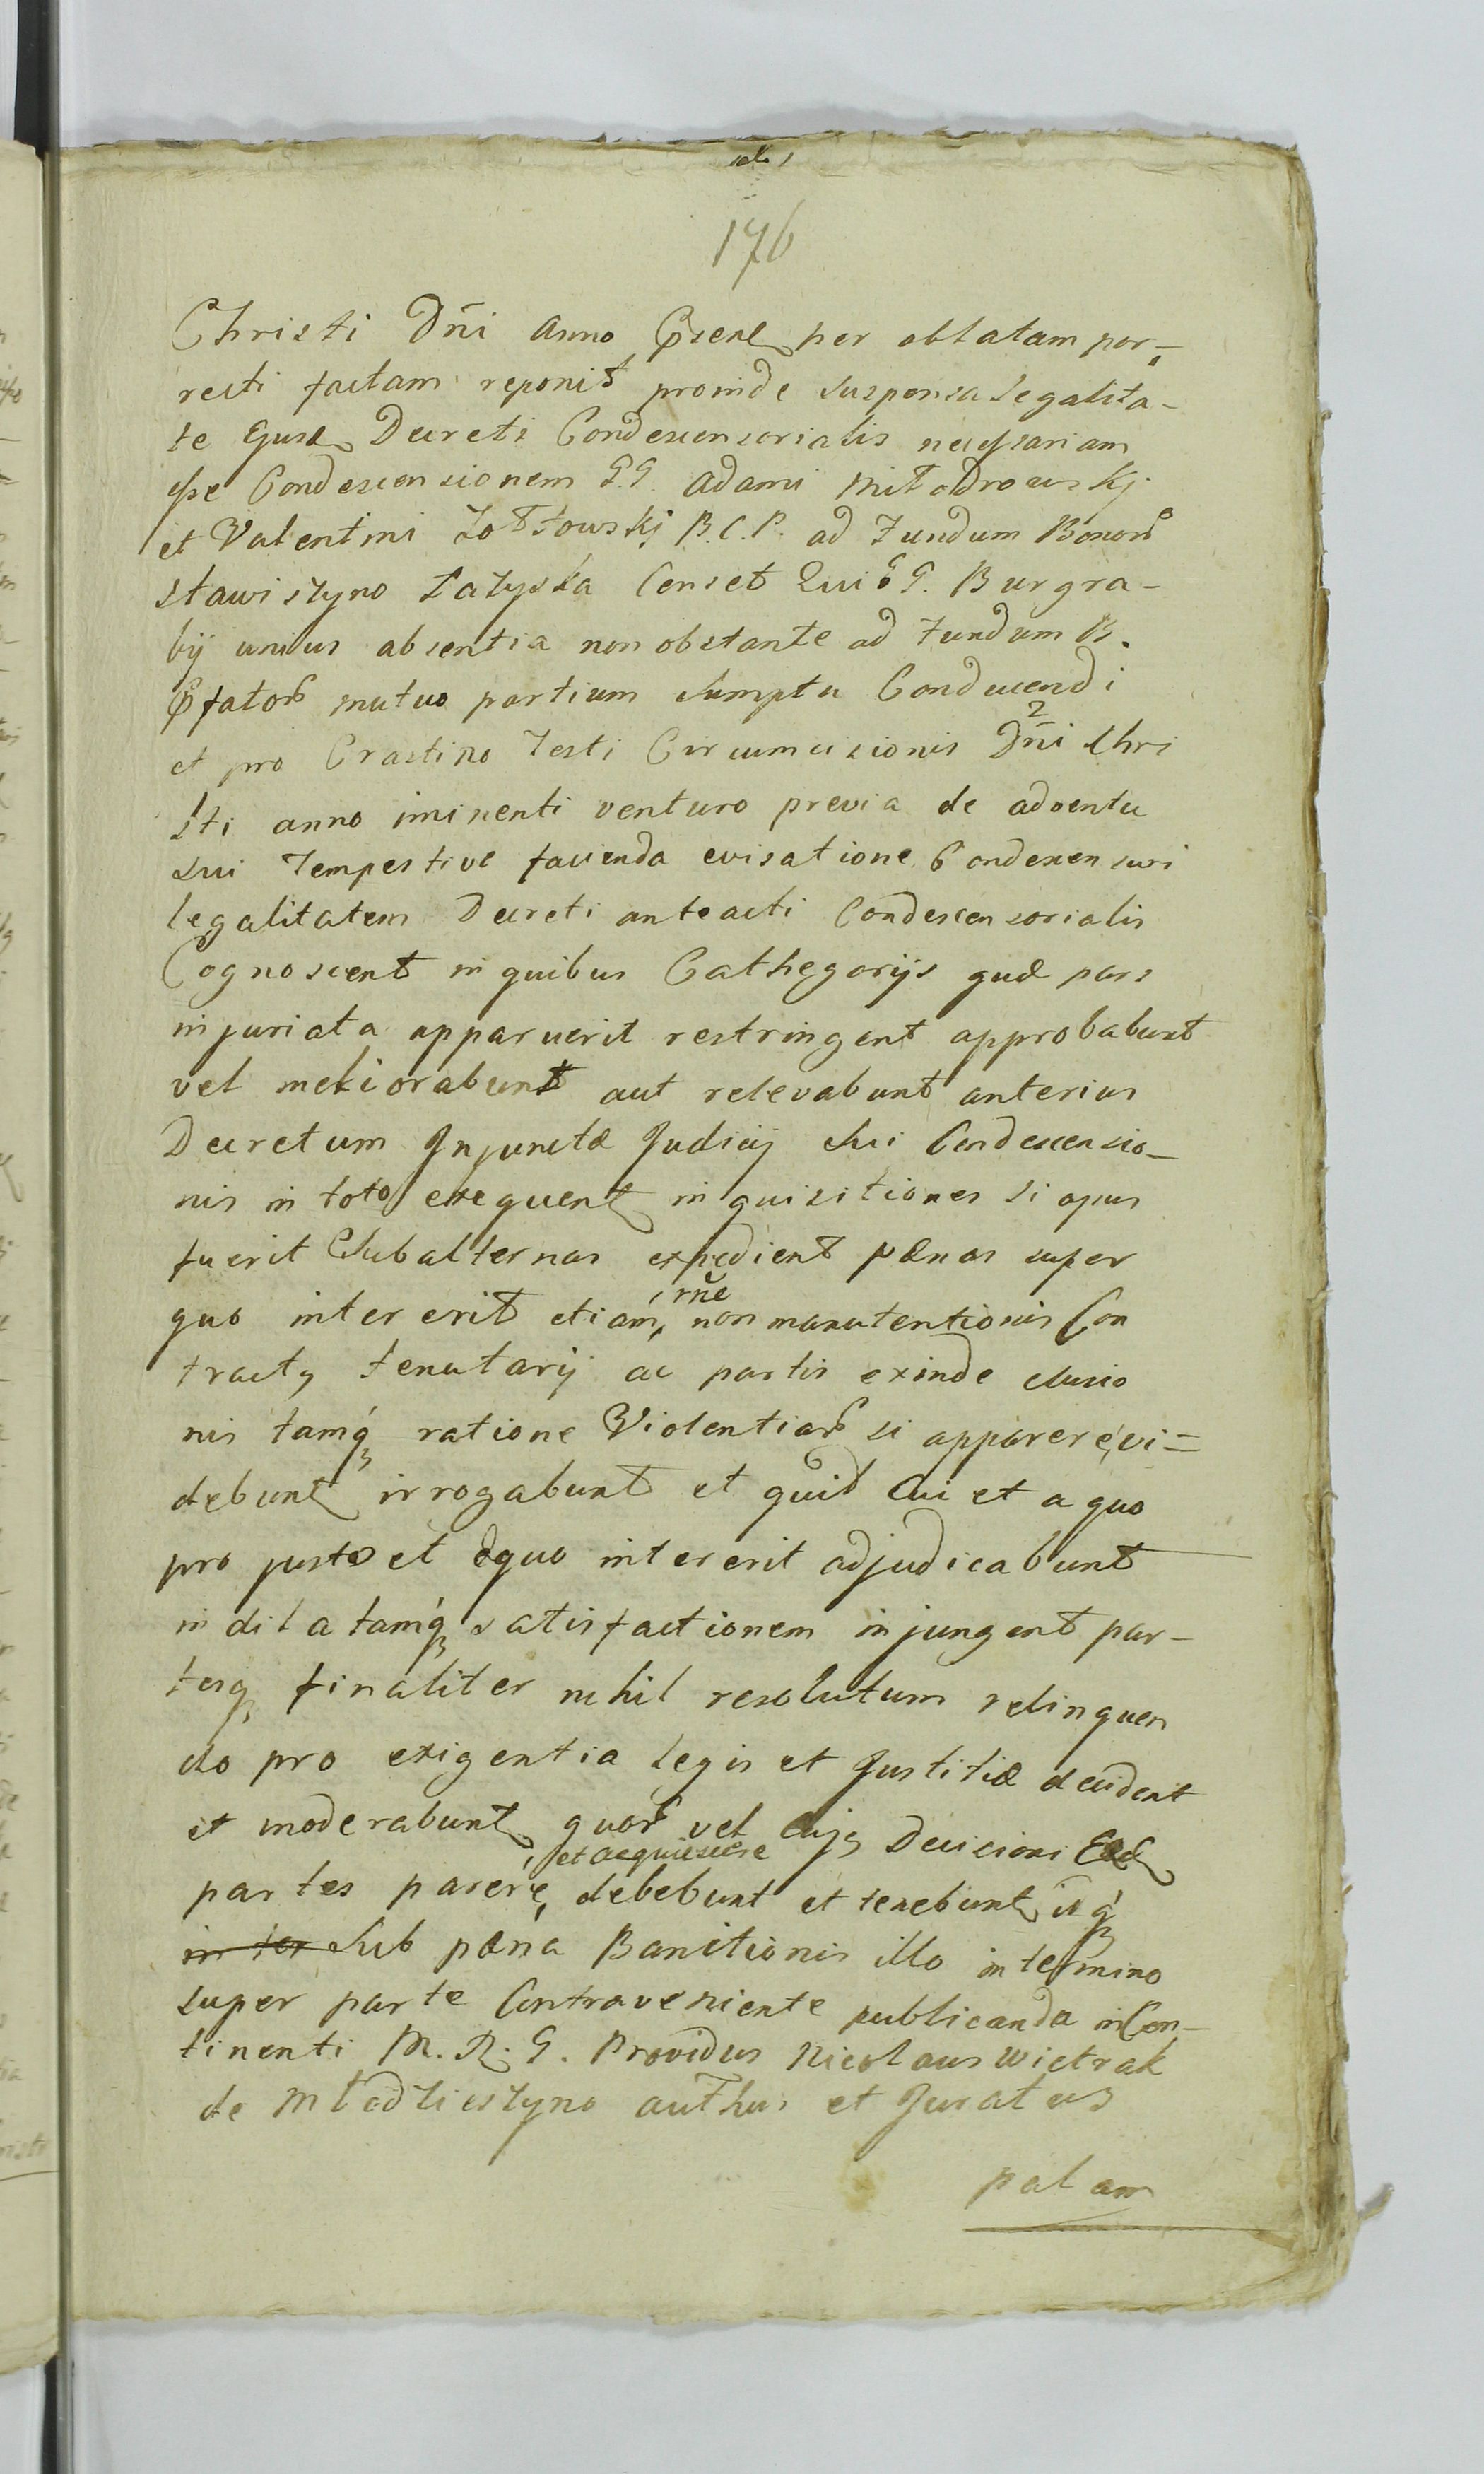 176
Christi Dñi Anno Psene per oblatam por-
recti factam reponit proinde suspensa Legalita-
te Ejusd Decreti Condescensorialis necessariam
esse Condescensionem G.G. Adami Mitodrowskj
et Valentini Zołtowskj B.C.P. ad Fundum Bonor
Stawiszyno Łazyska Censet Qui GG. Burgra-
bij unius absentia non obstante ad Fundum B.
Pfator mutuo partium Sumptu Conducendi
et pro Crastino Festi Circumcisionis Dñi Chri
sti anno iminenti venturo previa de adventu
sui Tempestive facienda avisatione Condescensuri
legalitatem Decreti anteacti Condescensorialis
Cognoscent in quibus Cathegorijs quæ pars
injuriata apparuerit restringent approbabunt
vel meliorabunt aut relevabunt anterius
Decretum Injunctæ Judicij Sui Condescensio-
nis in toto exequent inquisitiones si opus
fuerit Subalternas expedient pænas super
quo intererit etiam rñe non manutentionis Con
tractq tenutarij ac partis exinde elusio
nis tamq ratione Violentiar si apparere vi=
debunt irrogabunt et quid Cui et a quo
pro justo et æquo intererit adjudicabunt
indilatamq satisfactionem injungent par-
tesq finaliter nihil resolutum relinquen
do pro exigentia Legis et Justitiæ decident
et moderabunt quor vel Cujq Decisioni Eæd
partes parere et acquiescere debebunt et tenebunt idq
in ter Sub pæna Banitionis illo in termino
super parte Contraveniente publicanda in Con-
tinenti M.R.G. Providus Nicolaus Wietrak
de Młodzieszyno authus et Juratus
palam